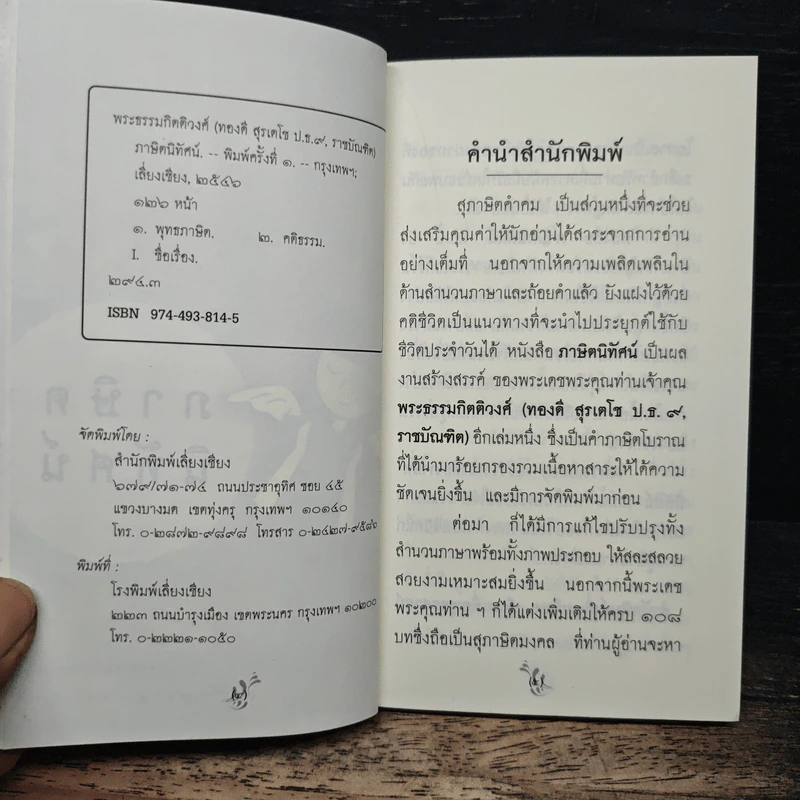 พระธรรมกิตติวงศ์ (ทองดี สุรเตโช ป.ธ.๙, ราชบัณฑิต)
ภาษิตนิทัศน์. -- พิมพ์ครั้งที่ ๑. -- กรุงเทพฯ;
เลี่ยงเชียง, ๒๕๔๖
๑๒๖ หน้า
๑. พุทธภาษิต. ๒. คติธรรม.
I. ชื่อเรื่อง.
๒๙๔.๓
ISBN 974-493-814-5
จัดพิมพ์โดย :
สำนักพิมพ์เลี่ยงเชียง
๖๗๙/๗๑-๗๔ ถนนประชาอุทิศ ซอย ๔๕
แขวงบางมด เขตทุ่งครุ กรุงเทพฯ ๑๐๑๔๐
โทร. ๐-๒๘๗๒-๙๘๙๘ โทรสาร ๐-๒๔๒๗-๙๕๘๖
พิมพ์ที่ :
โรงพิมพ์เลี่ยงเชียง
๒๒๓ ถนนบำรุงเมือง เขตพระนคร กรุงเทพฯ ๑๐๒๐๐
โทร. ๐-๒๒๒๑-๑๐๕๐
คำนำสำนักพิมพ์
สุภาษิตคำคม เป็นส่วนหนึ่งที่จะช่วย
ส่งเสริมคุณค่าให้นักอ่านได้สาระจากการอ่าน
อย่างเต็มที่ นอกจากให้ความเพลิดเพลินใน
ด้านสำนวนภาษาและถ้อยคำแล้ว ยังแฝงไว้ด้วย
คติชีวิตเป็นแนวทางที่จะนำไปประยุกต์ใช้กับ
ชีวิตประจำวันได้ หนังสือ ภาษิตนิทัศน์ เป็นผล
งานสร้างสรรค์ ของพระเดชพระคุณท่านเจ้าคุณ
พระธรรมกิตติวงศ์ (ทองดี สุรเตโช ป.ธ. ๙,
ราชบัณฑิต) อีกเล่มหนึ่ง ซึ่งเป็นคำภาษิตโบราณ
ที่ได้นำมาร้อยกรองรวมเนื้อหาสาระให้ได้ความ
ชัดเจนยิ่งขึ้น และมีการจัดพิมพ์มาก่อน
ต่อมา ก็ได้มีการแก้ไขปรับปรุงทั้ง
สำนวนภาษาพร้อมทั้งภาพประกอบ ให้สละสลวย
สวยงามเหมาะสมยิ่งขึ้น นอกจากนี้พระเดช
พระคุณท่าน ฯ ก็ได้แต่งเพิ่มเติมให้ครบ ๑๐๘
บทซึ่งถือเป็นสุภาษิตมงคล ที่ท่านผู้อ่านจะหา